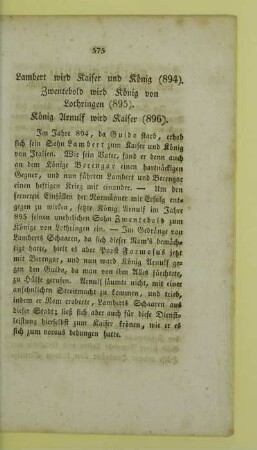 575
Lambert wird Kaiser und König (894).
Zwentebold wird König von
Lothringen (895).
König Arnulf wird Kaiser (896).
Im Jahre 894, da Guido starb, erhob
sich sein Sohn Lambert zum Kaiser und König
von Italien. Wie sein Vater, fand er denn auch
an dem Könige Berengar einen hartnäckigen
Gegner, und nun führten Lambert und Berengar
einen heftigen Krieg mit einander. — Um den
ferneren Einfällen der Normänner mit Erfolg entge-
gen zu wirken, setzte König Arnulf im Jahre
895 seinen unehelichen Sohn Zwentebold zum
Könige von Lothringen ein. — Im Gedränge von
Lamberts Schaaren, da sich dieser Rom's bemäch-
tigt hatte, hielt es aber Papst Formosus jetzt
mit Berengar, und nun ward König Arnulf ge-
gen den Guido, da man von ihm Alles fürchtete,
zu Hülfe gerufen. Arnulf säumte nicht, mit einer
ansehnlichen Streitmacht zu kommen, und trieb,
indem er Rom eroberte, Lamberts Schaaren aus
dieser Stadt; ließ sich aber auch für diese Dienst-
leistung hierselbst zum Kaiser krönen, wie er es
sich zum voraus bedungen hatte.